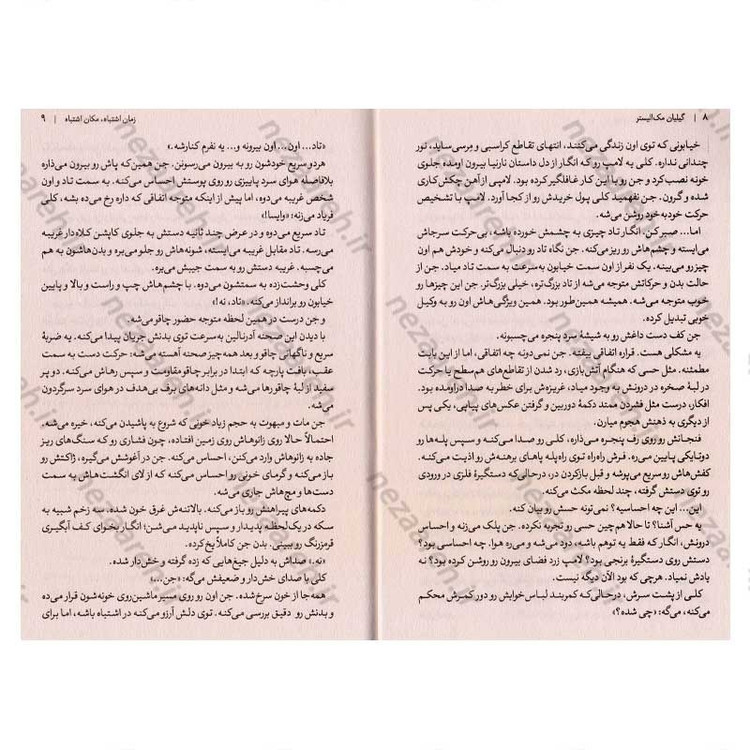 ۸ | گیلیان مک‌الیستر
خیابونی که توی اون زندگی می‌کنند، انتهای تقاطع کراسبی و مِرسی‌ساید، نور
چندانی نداره. کلی یه لامپ رو که انگار از دل داستان نارنیا بیرون اومده جلوی
خونه نصب کرد و جن رو با این کار غافلگیر کرده بود. لامپی از آهن چکش‌کاری
شده و گرون. جن نفهمید کلی پول خریدش رو از کجا آورد. لامپ با تشخیص
حرکت خودبه‌خود روشن می‌شه.
اما... صبر کن. انگار تاد چیزی به چشمش خورده باشه، بی‌حرکت سرجاش
می‌ایسته و چشم‌هاش رو ریز می‌کنه. جن نگاه تاد رو دنبال می‌کنه و خودش هم اون
چیز رو می‌بینه. یک نفر از اون سمت خیابون به‌سرعت به سمت تاد میاد. جن از
حالت بدن و حرکاتش متوجه می‌شه از تاد بزرگ‌تره، خیلی بزرگ‌تر. جن این چیزها رو
خوب متوجه می‌شه. همیشه همین‌طور بود. همین ویژگی‌هاش اون رو به وکیل
خوبی تبدیل کرده.
جن کف دست داغش رو به شیشهٔ سرد پنجره می‌چسبونه.
یه مشکلی هست. قراره اتفاقی بیفته. جن نمی‌دونه چه اتفاقی، اما از این بابت
مطمئنه. مثل حسی که هنگام آتش‌بازی، رد شدن از تقاطع‌های هم‌سطح یا حرکت
در لبهٔ صخره در درونش به وجود میاد، غریزه‌ش برای خطر به صدا دراومده بود.
افکار، درست مثل فشردن ممتد دکمهٔ دوربین و گرفتن عکس‌های پیاپی، یکی پس
از دیگری به ذهنش هجوم میارن.
فنجانش رو روی رف پنجره می‌ذاره، کلی رو صدا می‌کنه و سپس پله‌ها رو
دوتایکی پایین می‌ره. فرش راه‌راه توی راه‌پله پاهای برهنه‌ش رو اذیت می‌کنه.
کفش‌هاش رو سریع می‌پوشه و قبل بازکردن در، درحالی‌که دستگیرهٔ فلزی در ورودی
رو توی دستش گرفته، چند لحظه مکث می‌کنه.
این... این چه احساسیه؟ نمی‌تونه حسش رو بیان کنه.
یه حس آشنا؟ تا حالا هم‌چین حسی رو تجربه نکرده. جن پلک می‌زنه و احساس
درونش، انگار که فقط یه توهم باشه، دود می‌شه و می‌ره هوا. چه احساسی بود؟
دستش روی دستگیرهٔ برنجی بود؟ لامپ زرد فضای بیرون رو روشن کرده بود؟ نه
یادش نمیاد. هرچی که بود الآن دیگه نیست.
کلی از پشت سرش، درحالی‌که کمربند لباس خوابش رو دور کمرش محکم
می‌کنه، می‌گه: «چی شده؟»
زمان اشتباه، مکان اشتباه | ۹
«تاد... اون... اون بیرونه و... یه نفرم کنارشه.»
هردو سریع خودشون رو به بیرون می‌رسونن. جن همین‌که پاش رو بیرون می‌ذاره
بلافاصله هوای سرد پاییزی رو روی پوستش احساس می‌کنه. به سمت تاد و اون
شخص غریبه می‌دوه و، اما پیش از اینکه متوجه اتفاقی که داره رخ می‌ده بشه، کلی
فریاد می‌زنه: «وایسا!»
تاد سریع می‌دوه و در عرض چند ثانیه دستش به جلوی کاپشن کلاه‌دار غریبه
می‌رسه. تاد مقابل غریبه می‌ایسته، شونه‌هاش رو جلو می‌بره و بدن‌هاشون به هم
می‌چسبه. غریبه دستش رو به سمت جیبش می‌بره.
کلی وحشت‌زده به سمتشون می‌دوه. با چشم‌هاش چپ و راست و بالا و پایین
خیابون رو برانداز می‌کنه. «تاد، نه!»
و جن درست در همین لحظه متوجه حضور چاقو می‌شه.
با دیدن این صحنه آدرنالین به‌سرعت توی بدنش جریان پیدا می‌کنه. یه ضربهٔ
سریع و ناگهانی چاقو و بعد همه‌چیز صحنه آهسته می‌شه: حرکت دست به سمت
عقب، بافت پارچه که ابتدا در برابر چاقو مقاومت و سپس رهاش می‌کنه. دو پر
سفید از لبهٔ چاقو رها می‌شه و مثل دانه‌های برف بی‌هدف در هوای سرد سرگردون
می‌شه.
جن مات و مبهوت به حجم زیاد خونی که شروع به پاشیدن می‌کنه، خیره می‌شه.
احتمالاً حالا روی زانوهاش روی زمین افتاده، چون فشاری رو که سنگ‌های ریز
جاده به زانوهاش وارد می‌کنن، احساس می‌کنه. جن در آغوشش می‌گیره، ژاکتش رو
باز می‌کنه و گرمای خونی رو احساس می‌کنه که از لای انگشت‌هاش به سمت
دست‌ها و مچ‌هاش جاری می‌شه.
دکمه‌های پیراهنش رو باز می‌کنه. بالاتنه‌ش غرق خون شده. سه زخم شبیه به
سکه در یک‌لحظه پدیدار و سپس ناپدید می‌شن؛ انگار بخوای کف آبگیری
قرمزرنگ رو ببینی. بدن جن کاملاً یخ کرده.
«نه.» صداش به دلیل جیغ‌هایی که زده گرفته و خش‌داره.
کلی با صدای خش‌دار و ضعیفش می‌گه: «جن...»
همه‌جا از خون سرخ شده. جن اون رو روی مسیر ماشین‌روی خونه‌شون قرار می‌ده
و بدنش رو دقیق بررسی می‌کنه. توی دلش آرزو می‌کنه در اشتباه باشه، اما برای
nezaratehketab.ir